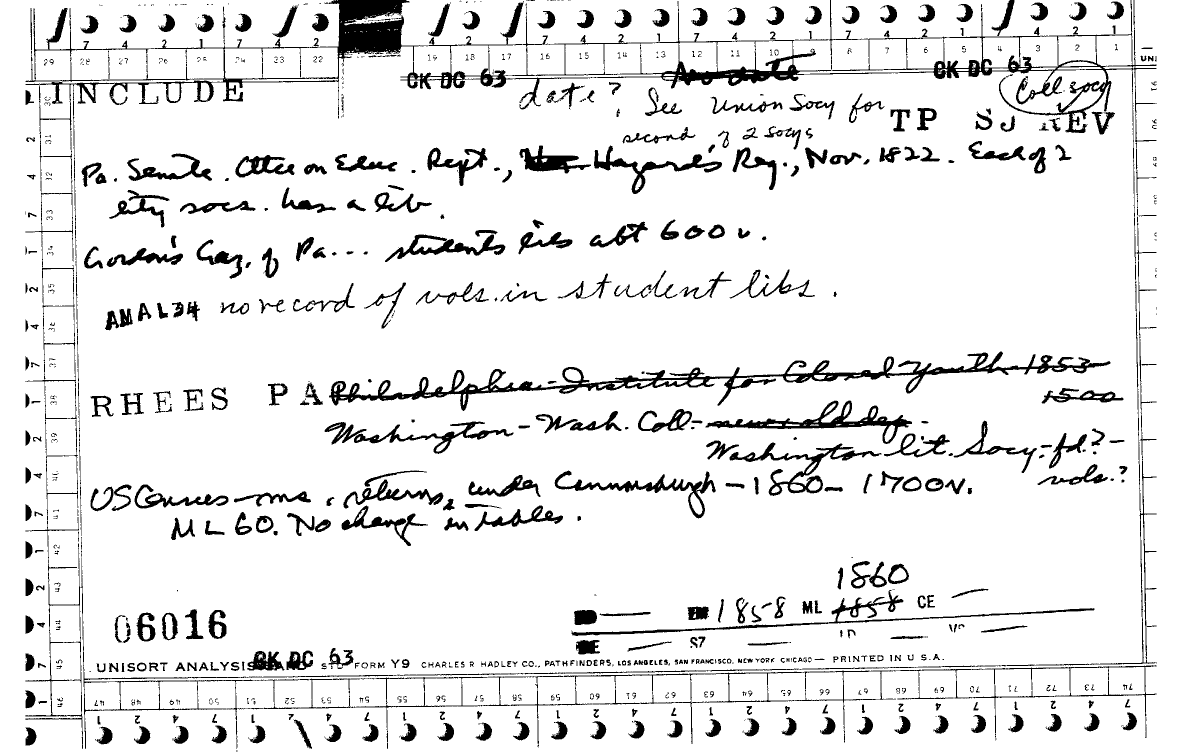 29 28 27 26 25 24 23 22 19 18 17 16 15 14 13 12 11 10 9 8 7 6 5 4 3 2 1
CK DC 63 No date CK DC 63
INCLUDE date? See Union Socy for TP SJ REV Coll socy
second of 2 Socys
Pa. Senate. Cttee on Educ. Rept., Hazard's Reg., Nov. 1822. Each of 2
city socs. has a lib.
Gordon's Gaz. of Pa... students libs abt 600 v.
ANAL34 no record of vols. in student libs.
RHEES PA Philadelphia - Institute for Colored Youth - 1853 -
1500
Washington - Wash. Coll. - news old dep. -
Washington lit. Socy. - fd.? -
vols.?
US Census - ms. returns, under Cannonsburgh - 1860 - 1700v.
ML 60. No change in tables.
1860
06016
EM 1858 ML 1858 CE
SZ
UNISORT ANALYSIS CARD CK DC 63 FORM Y9 CHARLES R HADLEY CO., PATHFINDERS, LOS ANGELES, SAN FRANCISCO, NEW YORK CHICAGO — PRINTED IN U.S.A.
47 48 49 50 51 52 53 54 55 56 57 58 59 60 61 62 63 64 65 66 67 68 69 70 71 72 73 74